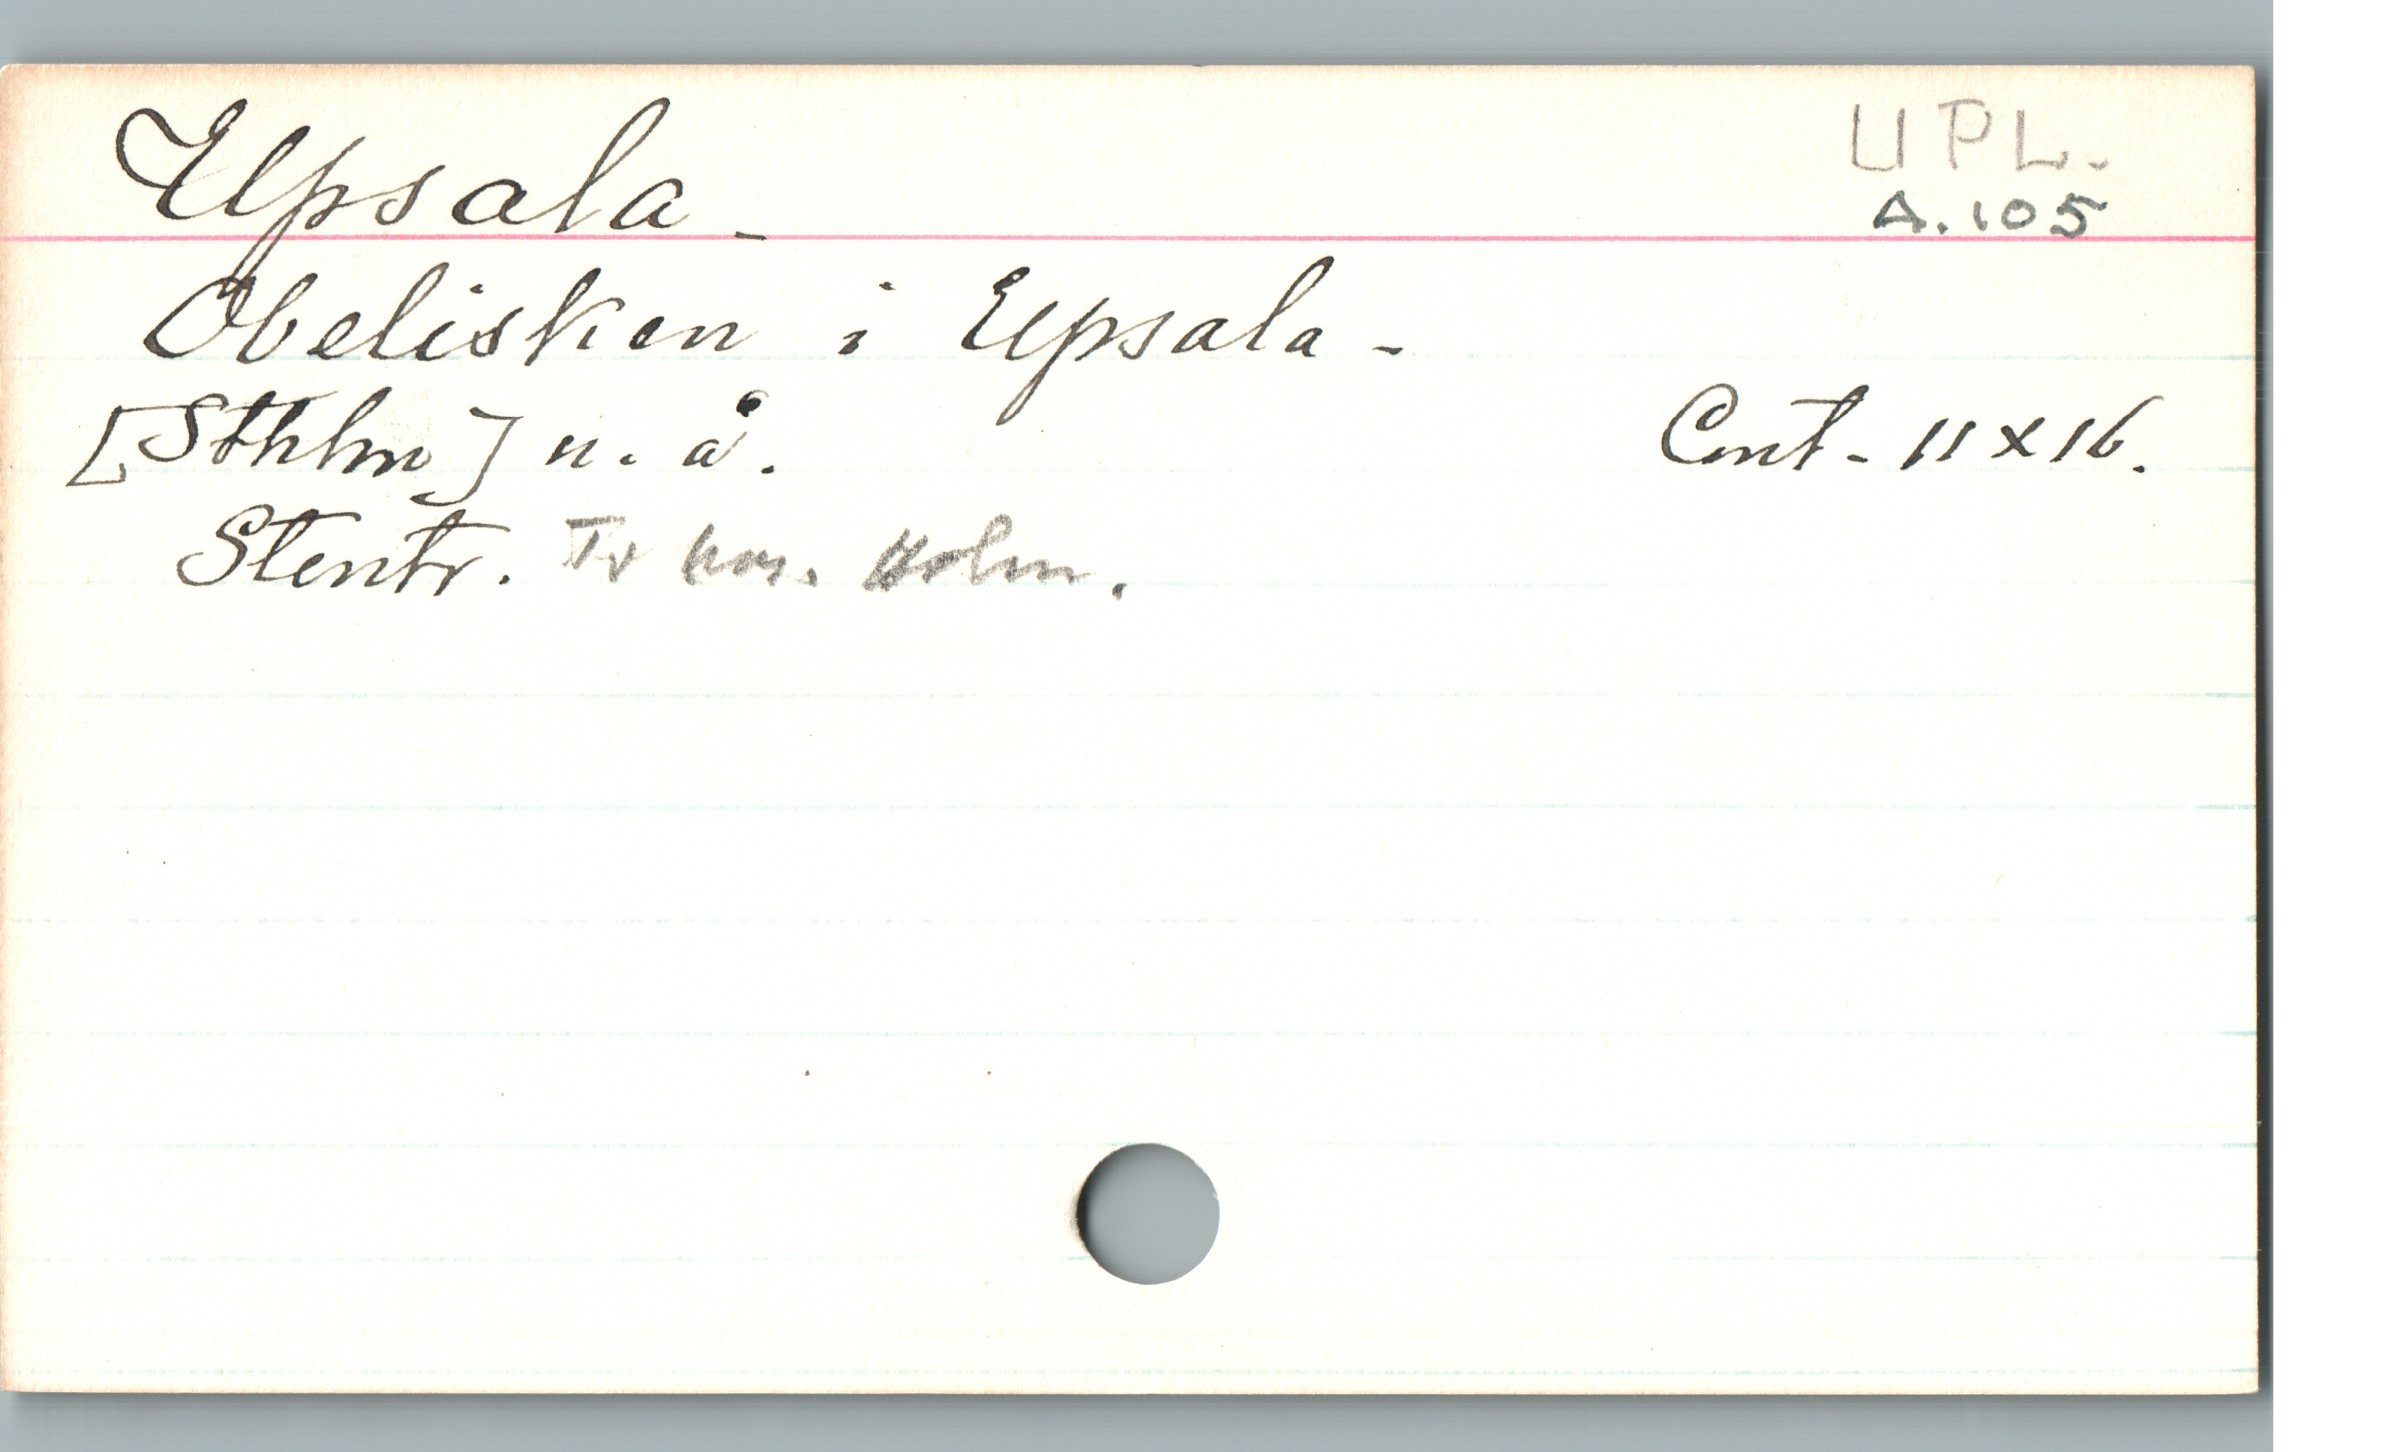 Upsala -
UPL.
A.105
Obelisken i Upsala -
[Sthlm] u. å. Cont - 11 x 16.
Stentr. Tr hos. Holm.